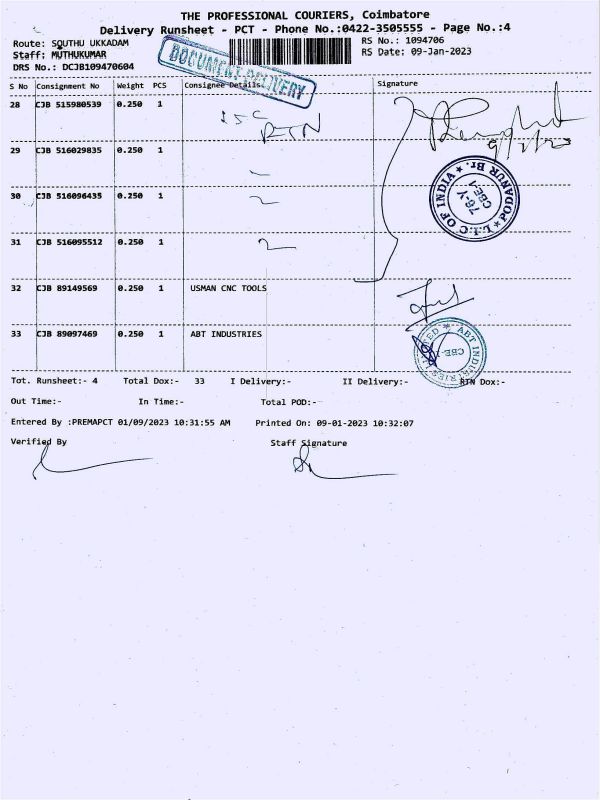 THE PROFESSIONAL COURIERS, Coimbatore
Delivery Runsheet - PCT - Phone No.:0422-3505555 - Page No.:4
Route: SOUTHU UKKADAM
RS No.: 1094706
Staff: MUTHUKUMAR
RS Date: 09-Jan-2023
DRS No.: DCJB109470604
DOCUMENT DELIVERY
S No Consignment No Weight PCS Consignee Details Signature
28 CJB 515980539 0.250 1
29 CJB 516029835 0.250 1
30 CJB 516096435 0.250 1
31 CJB 516095512 0.250 1
L.I.C OF INDIA ★ PODANUR Br. ★
76-Y
CBE-1
32 CJB 89149569 0.250 1 USMAN CNC TOOLS
33 CJB 89097469 0.250 1 ABT INDUSTRIES
ABT INDUSTRIES
CBE-
Tot. Runsheet:- 4 Total Dox:- 33 I Delivery:- II Delivery:- RTN Dox:-
Out Time:- In Time:- Total POD:-
Entered By :PREMAPCT 01/09/2023 10:31:55 AM Printed On: 09-01-2023 10:32:07
Verified By Staff Signature